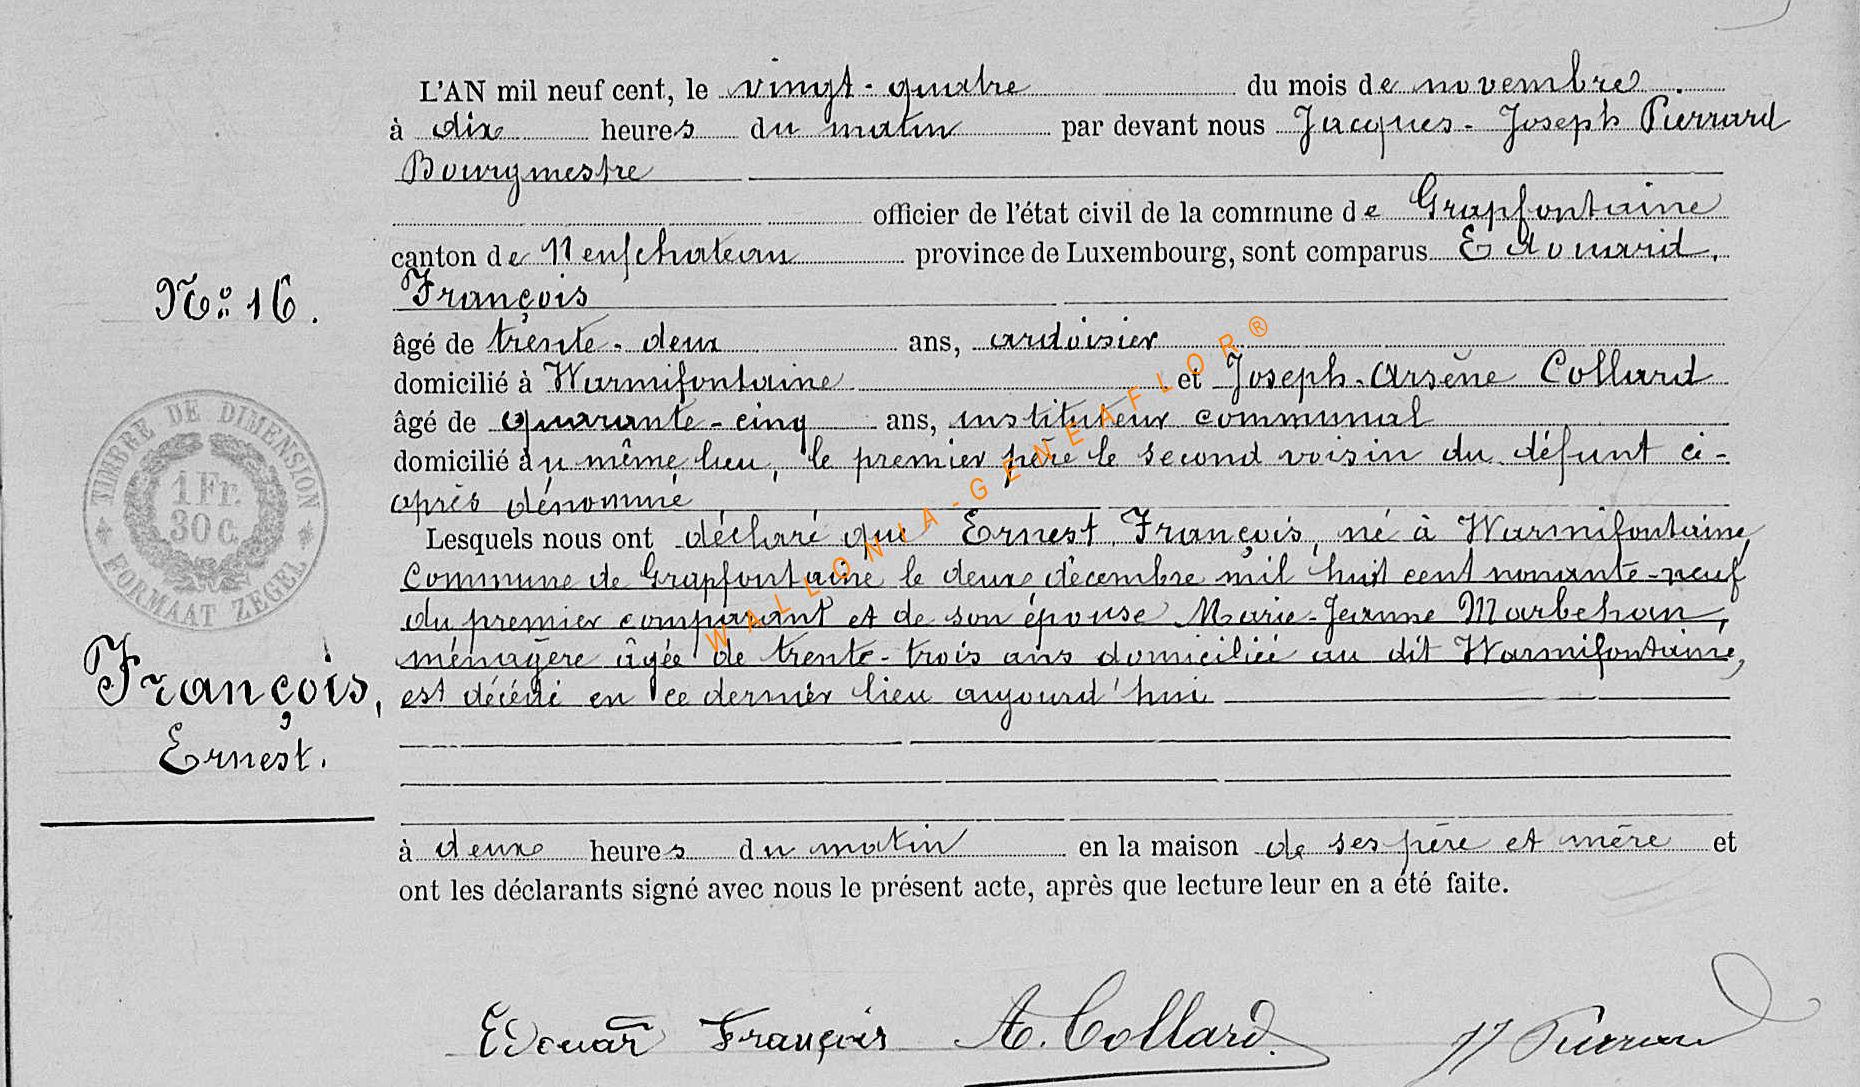 L'AN mil neuf cent, le vingt-quatre du mois de novembre
à dix heures du matin par devant nous Jacques-Joseph Pierrard
Bourgmestre
officier de l'état civil de la commune de Grapfontaine
canton de Neufchateau province de Luxembourg, sont comparus Edouard,
François
No: 16.
âgé de trente-deux ans, ardoisier
domicilié à Warmifontaine et Joseph-Arsène Collard
âgé de quarante-cinq ans, instituteur communal
domicilié au même lieu, le premier père le second voisin du défunt ci-
après dénommé
Lesquels nous ont déclaré que Ernest François, né à Warmifontaine,
Commune de Grapfontaine le deux décembre mil huit cent nonante-neuf
du premier comparant et de son épouse Marie-Jeanne Marbehan,
ménagère âgée de trente-trois ans domiciliée au dit Warmifontaine,
est décédé en ce dernier lieu aujourd'hui
TIMBRE DE DIMENSION
1 Fr.
30 c.
FORMAAT ZEGEL
François,
Ernest.
à deux heures du matin en la maison de ses père et mère et
ont les déclarants signé avec nous le présent acte, après que lecture leur en a été faite.
Edouar François A. Collard JJ Pierrard
WALLONIA-GENEAFLOR®